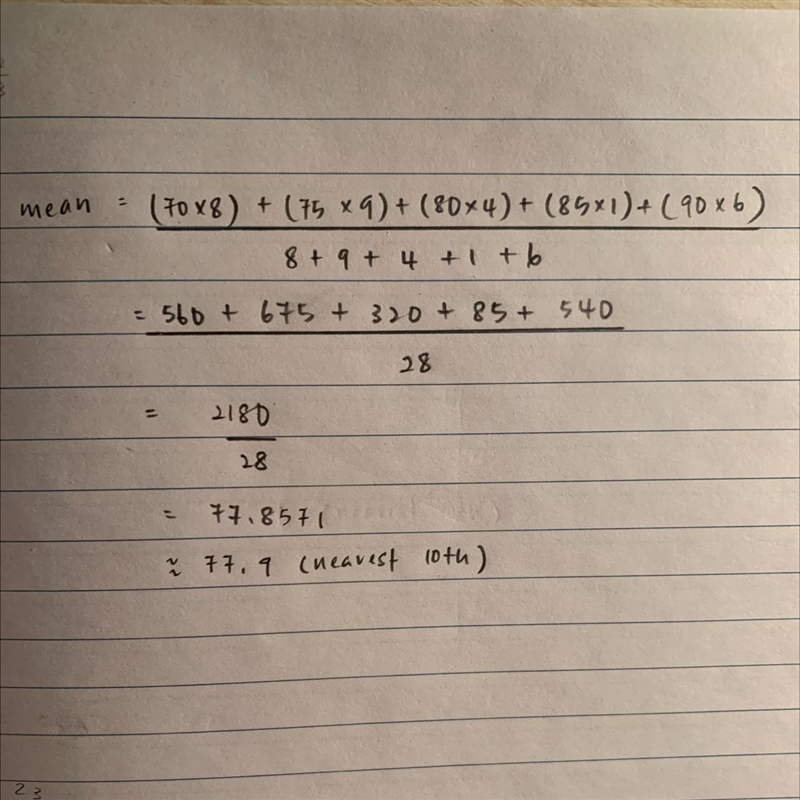 mean = (70×8) + (75×9) + (80×4) + (85×1) + (90×6)
8 + 9 + 4 + 1 + 6
= 560 + 675 + 320 + 85 + 540
28
= 2180
28
= 77.8571
≈ 77.9 (nearest 10th)
23